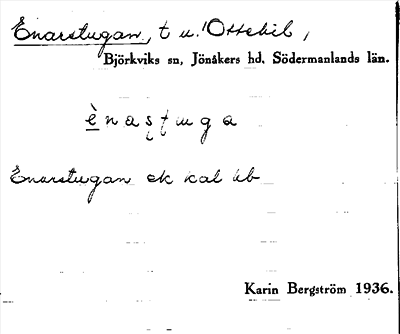 Enarstugan, t u. Ottekil,
Björkviks sn, Jönåkers hd, Södermanlands län.
ènastuga
Enarstugan ek kal hb
Karin Bergström 1936.